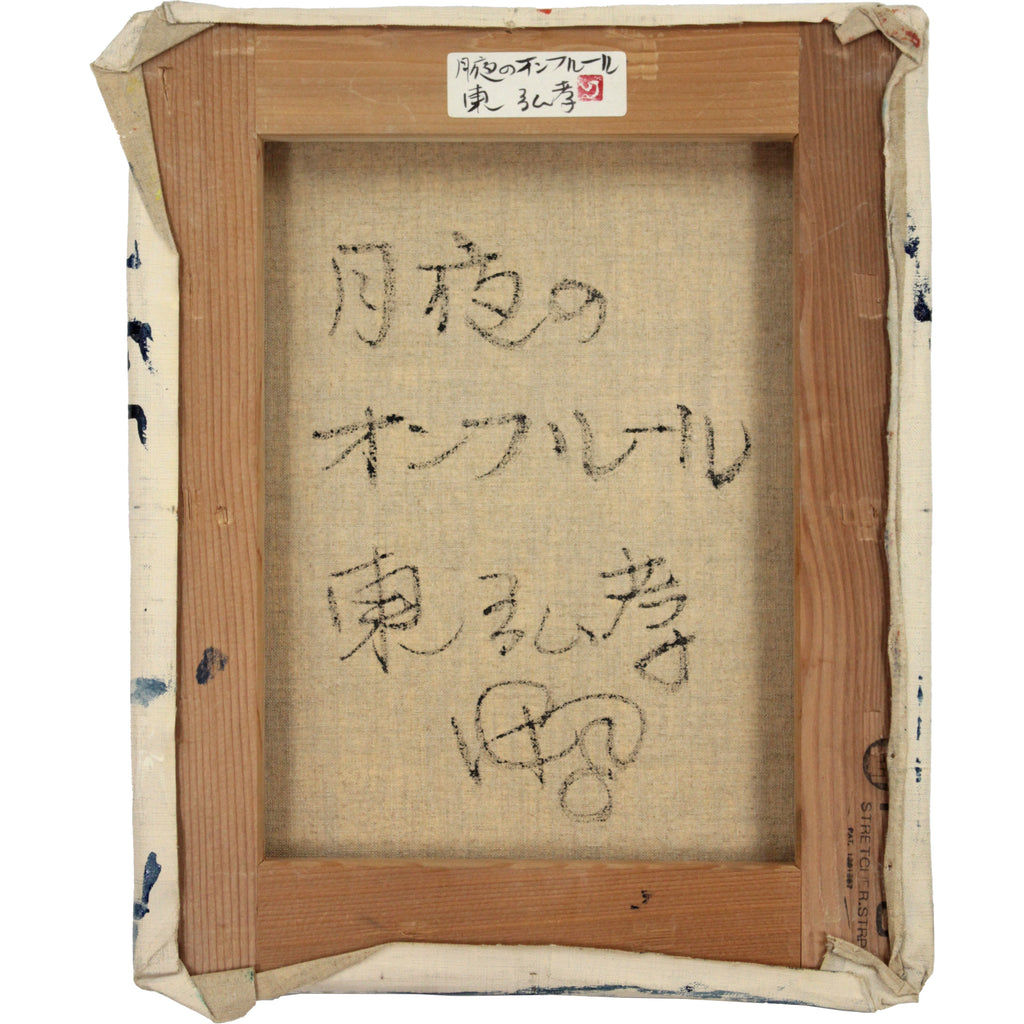 月夜のオンフルール
東 弘孝
月夜の
オンフルール
東 弘孝
STRETCHER.STRP
PAT. 1201087